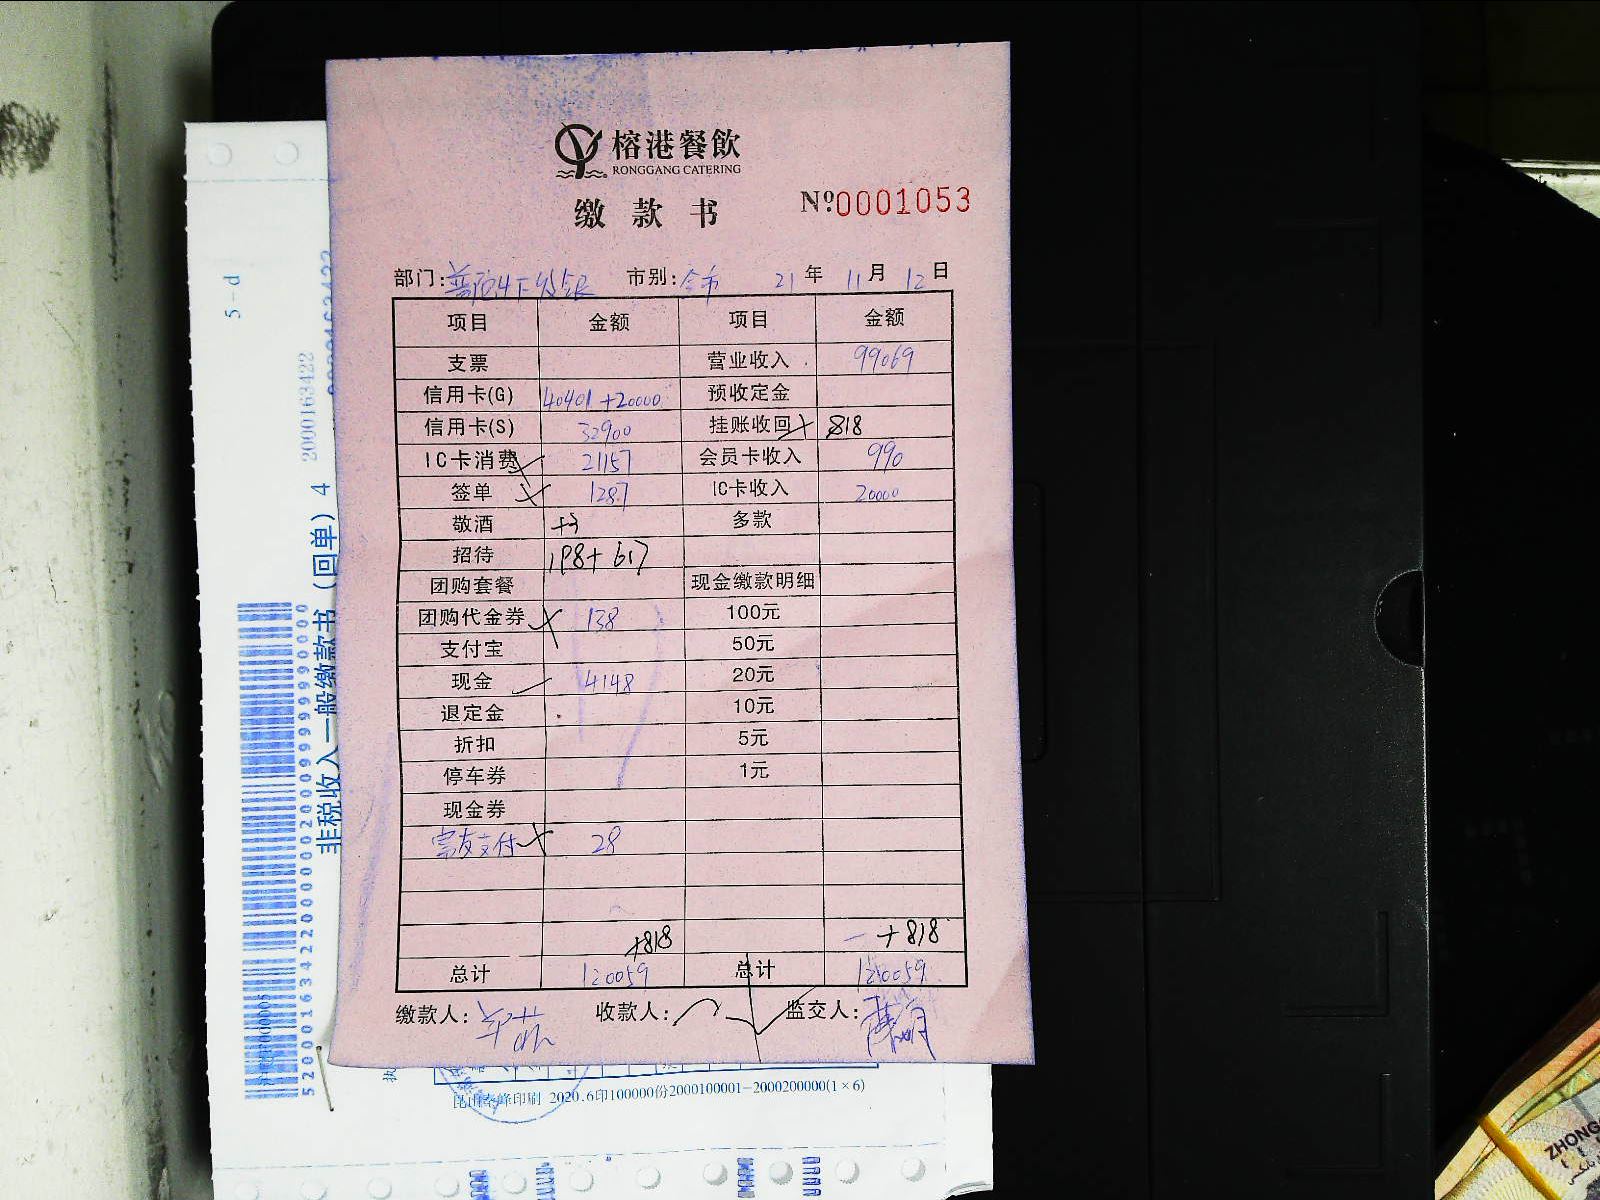 榕港餐飲
RONGGANG CATERING
缴款书
№0001053
部门: 市别:全市 21年 11月 12日
项目 金额 项目 金额
支票 营业收入 99069
信用卡(G) 40401+20000 预收定金
信用卡(S) 32900 挂账收回 818
IC卡消费 21157 会员卡收入 990
签单 1287 IC卡收入 20000
敬酒 +3 多款
招待 198+617
团购套餐 现金缴款明细
团购代金券 138 100元
支付宝 50元
现金 4148 20元
退定金 10元
折扣 5元
停车券 1元
现金券
支付 28
+818 +818
总计 120059 总计 120059
缴款人: 收款人: 监交人:
5-d
2000163422
非税收入一般缴款书(回单)4
昆山泰峰印刷 2020.6印100000份2000100001-2000200000(1×6)
ZHONG